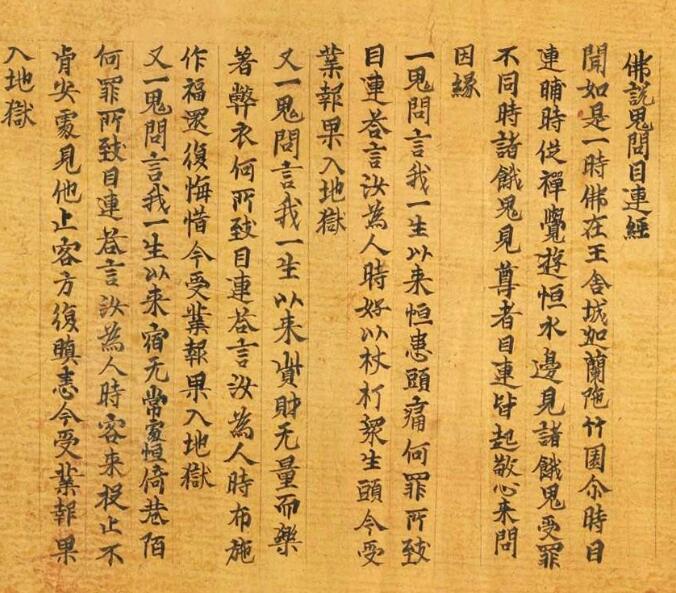 佛說鬼問目連經
聞如是一時佛在王舍城迦蘭陁竹園尒時目
連晡時従禪覺遊恒水邊見諸餓鬼受罪
不同時諸餓鬼見尊者目連皆起敬心来問
因緣
一鬼問言我一生以来恒患頭痛何罪所致
目連荅言汝為人時好以杖打衆生頭今受
業報果入地獄
又一鬼問言我一生以来貲財无量而樂
著弊衣何所致目連荅言汝為人時布施
作福還復悔惜今受業報果入地獄
又一鬼問言我一生以来宿无常家恒倚巷陌
何罪所致目連荅言汝為人時客来投止不
肯安處見他止客方復瞋恚今受業報果
入地獄